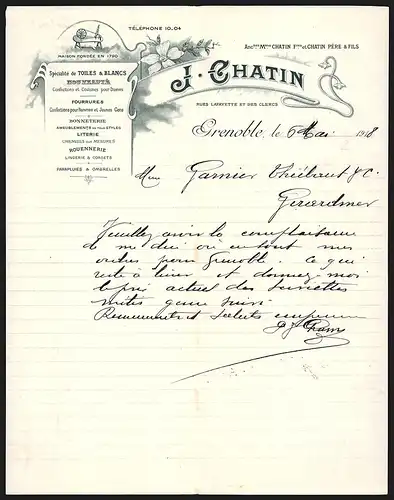 TÉLÉPHONE 10.04
MAISON FONDÉE EN 1790
Ancne Mson CHATIN Fres et CHATIN PÈRE & FILS
J. CHATIN
RUES LAFAYETTE ET DES CLERCS
Spécialité de TOILES & BLANCS
NOUVEAUTÉ
Confections et Costumes pour Dames
FOURRURES
Confections pour Hommes et Jeunes Gens
BONNETERIE
AMEUBLEMENTS EN TOUS STYLES
LITERIE
CHEMISES SUR MESURES
ROUENNERIE
LINGERIE & CORSETS
PARAPLUIES & OMBRELLES
Grenoble, le 6 Mai 1918
Garnier Thiébaut & C.
Gerardmer
Veuillez avoir la complaisance
de me dire où en sont mes
ordres pour Grenoble. Ce qui
reste à livrer et donnez-moi
le prix actuel des serviettes